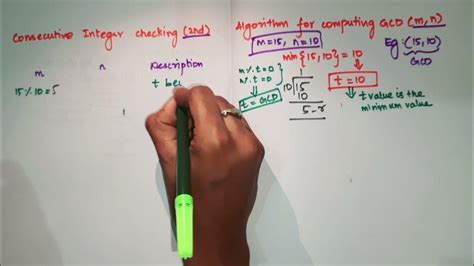 Consecutive Integer checking (2nd)
m n Description
15 % 10 = 5 t be
Algorithm for computing GCD (m, n)
m=15, n=10
Eg: (15, 10)
GCD
min {15, 10} = 10
m % t = 0
n % t = 0
t = GCD
1
10 15
10
5 - r
t = 10
t value is the
minimum value